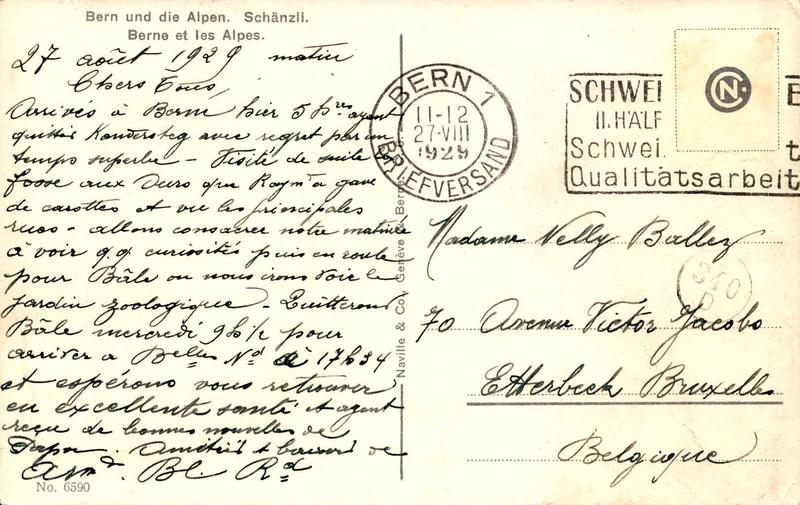 Bern und die Alpen. Schänzli.
Berne et les Alpes.
27 août 1929 matin
Chers Tous
Arrivés à Berne hier 5 hres ayant
quitté Kandersteg avec regret par un
temps superbe – Visité de suite la
fosse aux Ours que Raymd a gavé
de carottes et vu les principales
rues – allons consacrer notre matinée
à voir q.q curiosités puis en route
pour Bâle ou nous irons voir le
jardin zoologique – Quitterons
Bâle mercredi 9h ½ pour
arriver à Belles Nd à 17h34
et espérons vous retrouver
en excellente santé et ayant
reçu de bonnes nouvelles de
Papa. Amitiés & baisers de
Armd. Bl. Rd
No. 6590
Naville & Co, Genève & Berne
BERN 1
11-12
27·VIII
1929
BRIEFVERSAND
SCHWEI
II. HÄLF
Schwei. t
Qualitätsarbeit
CN
Madame Nelly Ballez
340
D
70 Avenue Victor Jacobs
Etterbeek Bruxelles
Belgique